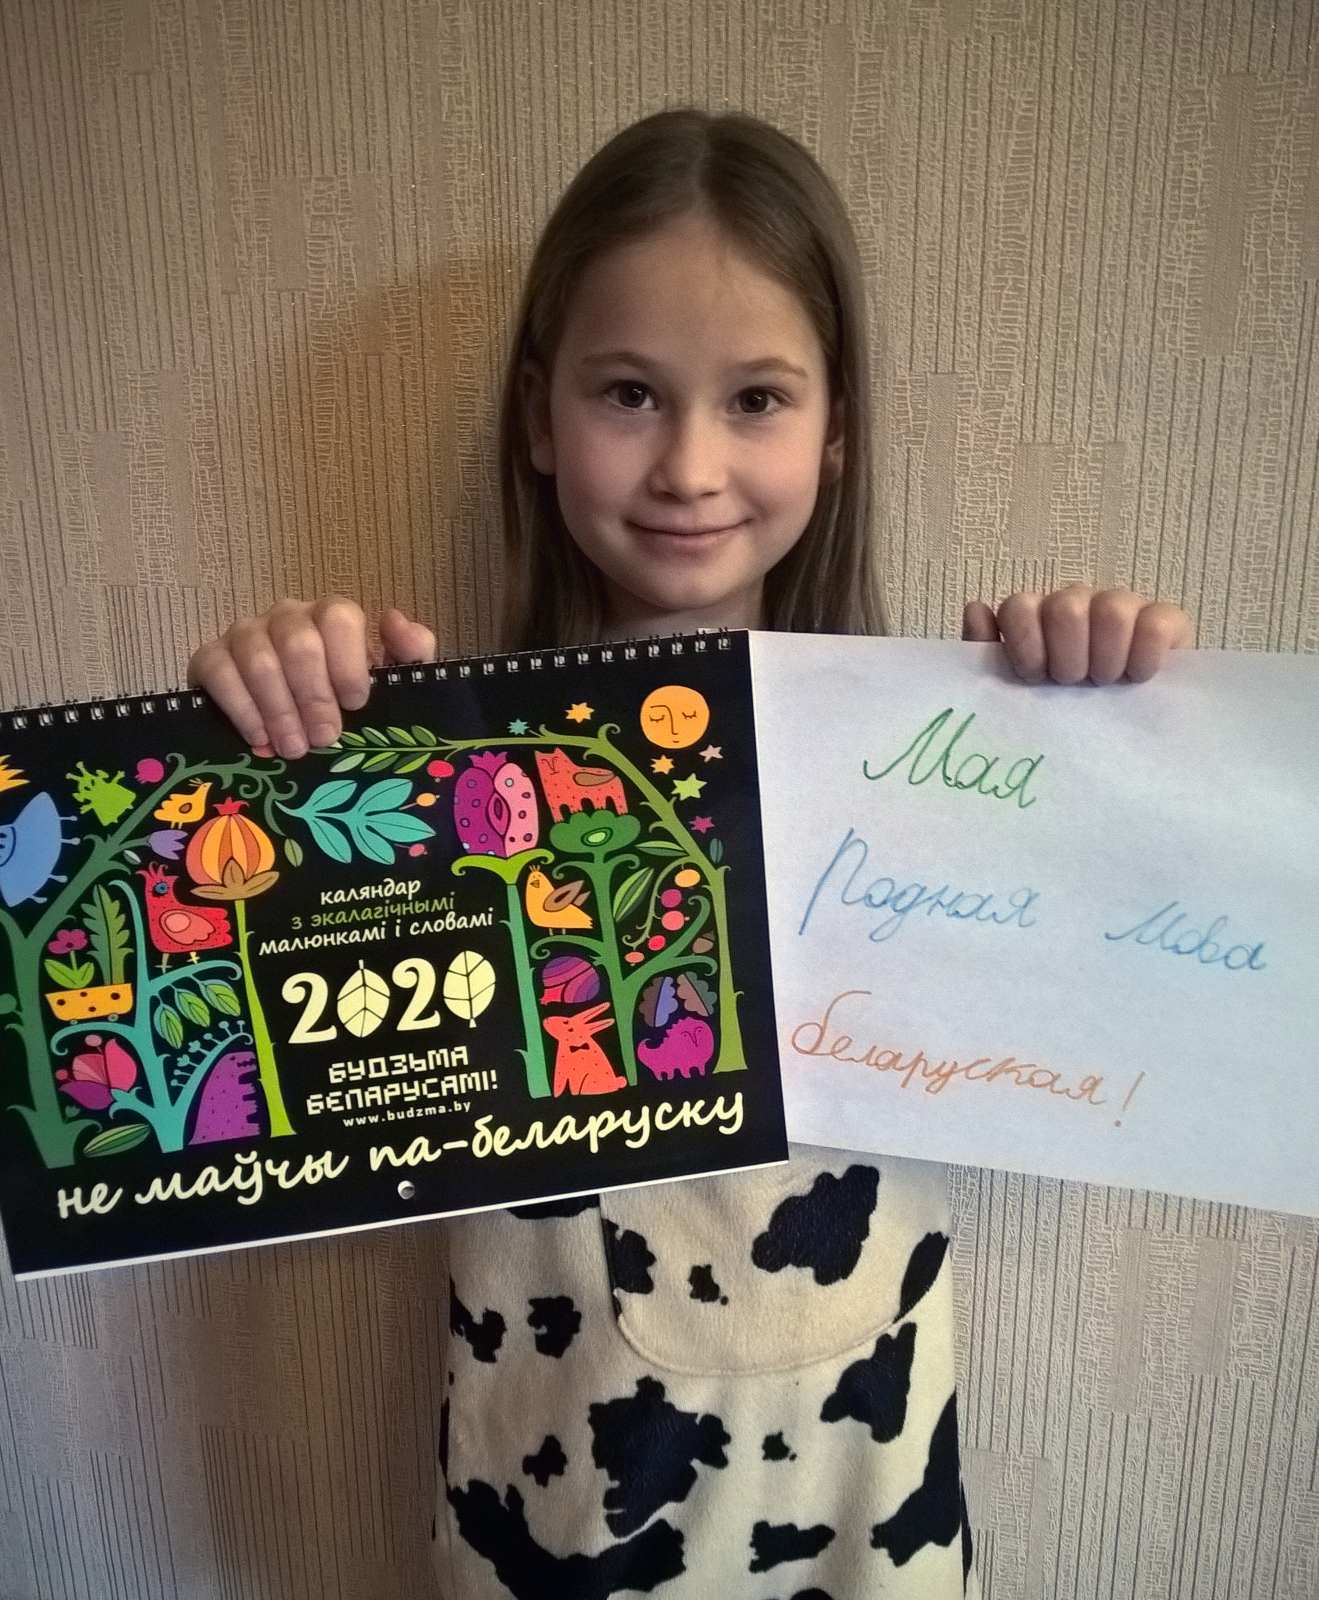 каляндар
з экалагічнымі
малюнкамі і словамі
2020
БУДЗЬМА
БЕЛАРУСАМІ!
www.budzma.by
не маўчы па-беларуску
Мая
Родная Мова
беларуская!